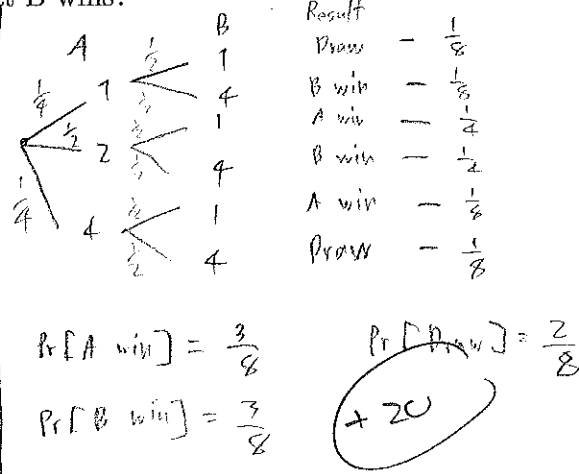 B wins.
A B Result
1/4 1 1/2 1 Draw - 1/8
1/2 4 B win - 1/8
1/2 2 1/2 1 A win - 1/4
1/2 4 B win - 1/4
1/4 4 1/2 1 A win - 1/8
1/2 4 Draw - 1/8
Pr[A win] = 3/8 Pr[Draw] = 2/8
Pr[B win] = 3/8
+20